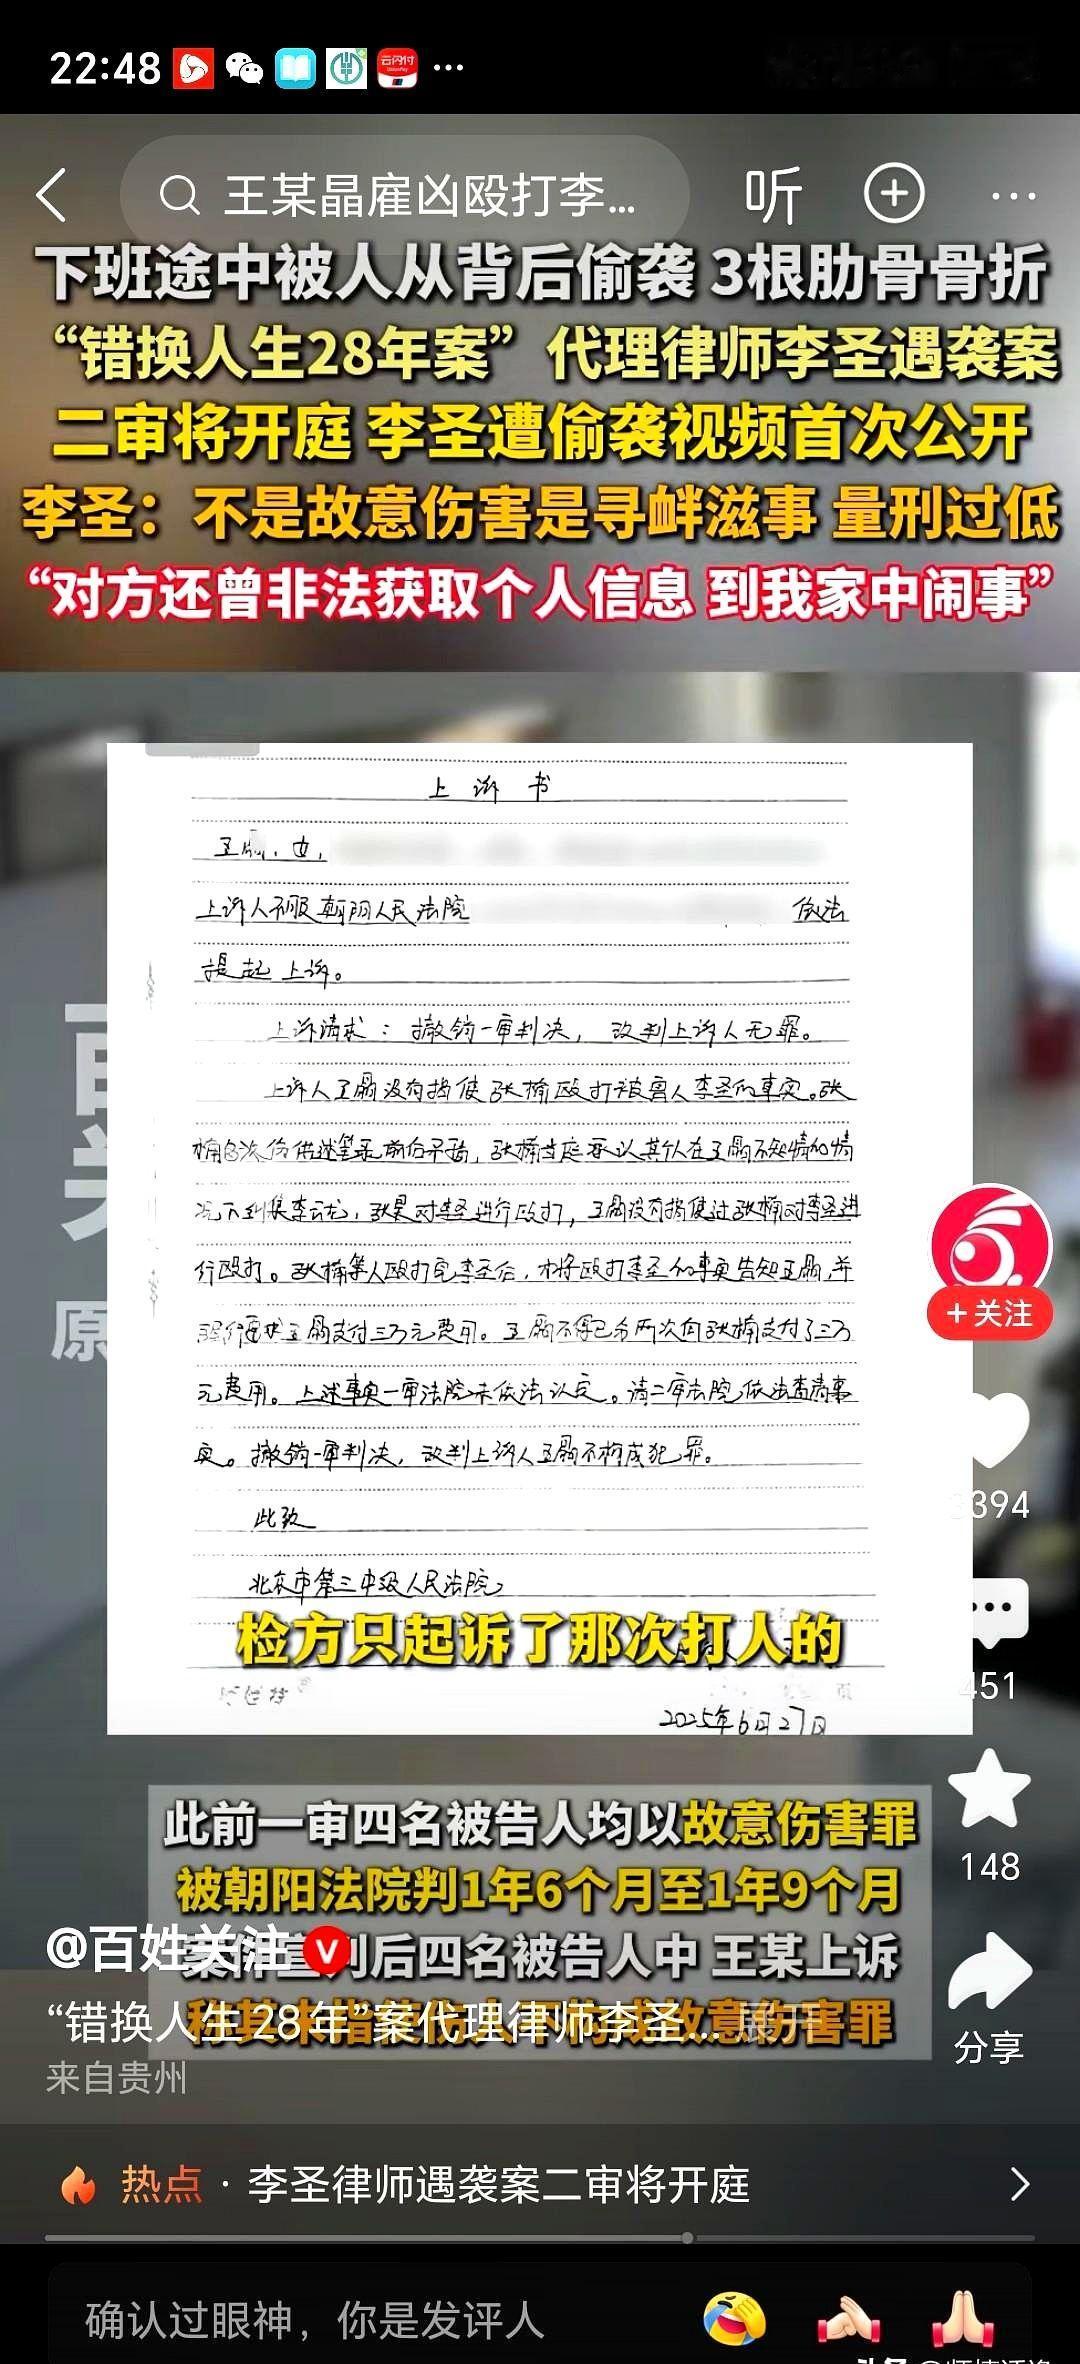 22:48
云闪付
王某晶雇凶殴打李...
听
下班途中被人从背后偷袭 3根肋骨骨折
“错换人生28年案”代理律师李圣遇袭案
二审将开庭 李圣遭偷袭视频首次公开
李圣：不是故意伤害是寻衅滋事 量刑过低
“对方还曾非法获取个人信息 到我家中闹事”
上诉书
女，
上诉人不服朝阳人民法院 依法
提起上诉。
上诉请求：撤销一审判决，改判上诉人无罪。
上诉人王晶没有指使张楠殴打被害人李圣的事实。张
楠的 供述笔录前后矛盾，张楠当庭承认其于在王晶不知情的情
况下纠集李云龙，张果对李圣进行殴打，王晶没有指使过张楠对李圣进
行殴打。张楠等人殴打完李圣后，才将殴打李圣的事实告知王晶，并
要求王晶支付三万元费用。王晶不得已分两次向张楠支付了三万
元费用。上述事实一审法院未依法认定。请二审法院依法查清事
实。撤销一审判决，改判上诉人王晶不构成犯罪。
此致
北京市第三中级人民法院
检方只起诉了那次打人的
2025年6月27日
+关注
3394
451
148
分享
此前一审四名被告人均以故意伤害罪
被朝阳法院判1年6个月至1年9个月
@百姓关注
判后四名被告人中 王某上诉
“错换人生28年”案代理律师李圣... 展开
故意伤害罪
来自贵州
热点 · 李圣律师遇袭案二审将开庭
确认过眼神，你是发评人